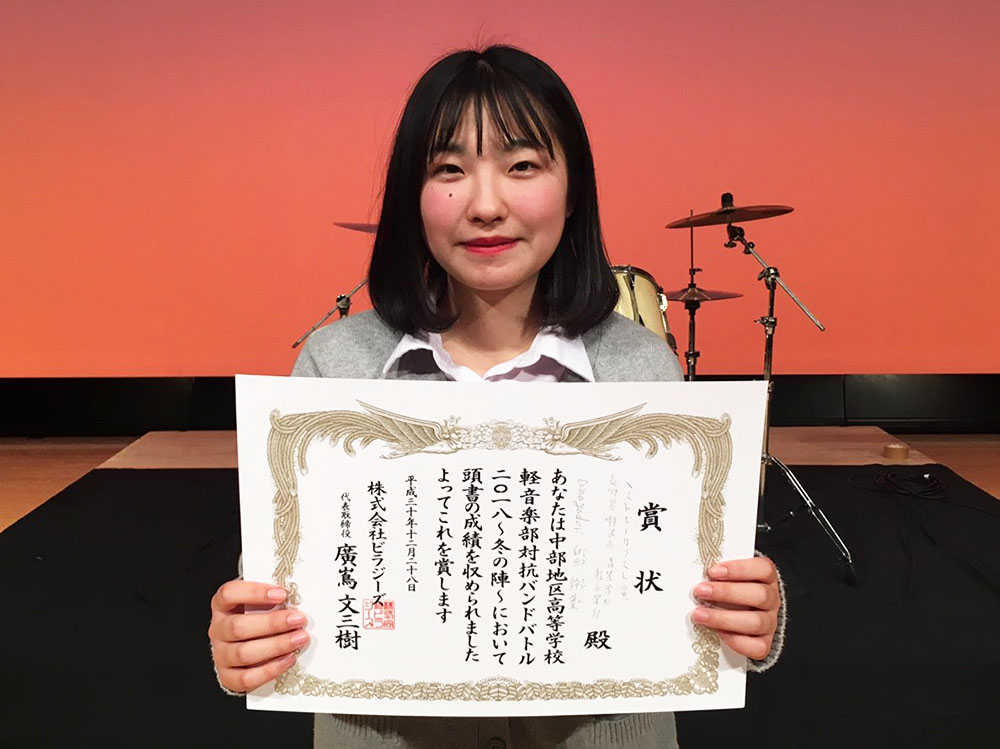 賞状
ベストボーカリスト賞
殿
あなたは中部地区高等学校
軽音楽部対抗バンドバトル
二〇一八～冬の陣～において
頭書の成績を収められました
よってこれを賞します
平成三十年十二月二十八日
株式会社ビラジーズ
代表取締役 廣嶌 文三樹